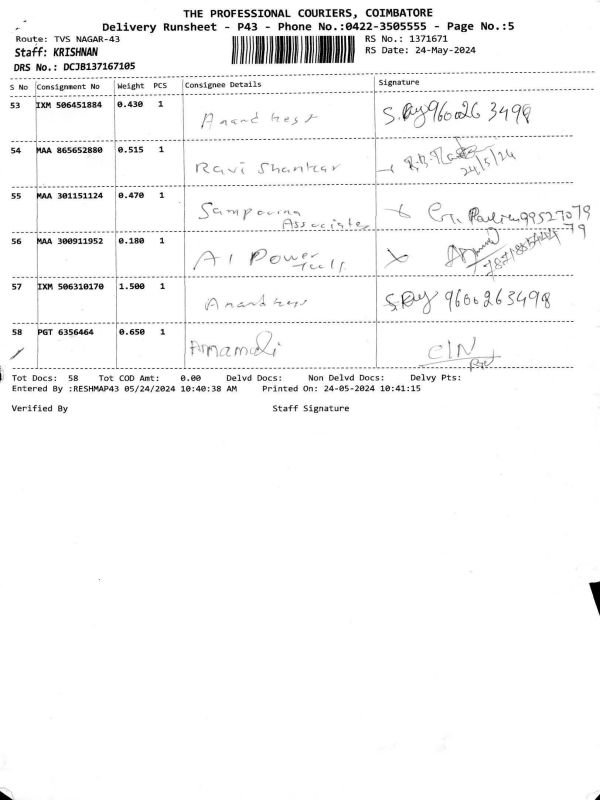 THE PROFESSIONAL COURIERS, COIMBATORE
Delivery Runsheet - P43 - Phone No.:0422-3505555 - Page No.:5
Route: TVS NAGAR-43 RS No.: 1371671
Staff: KRISHNAN RS Date: 24-May-2024
DRS No.: DCJB137167105
S No Consignment No Weight PCS Consignee Details Signature
53 IXM 506451884 0.430 1
Anand S. 9600263498
54 MAA 865652880 0.515 1
Ravi Shankar 24/5/24
55 MAA 301151124 0.470 1
Sampoorna
Associates
56 MAA 300911952 0.180 1
A1 Power
Tools
57 IXM 506310170 1.500 1
Anand S. 9600263498
58 PGT 6356464 0.650 1
Tot Docs: 58 Tot COD Amt: 0.00 Delvd Docs: Non Delvd Docs: Delvy Pts:
Entered By :RESHMAP43 05/24/2024 10:40:38 AM Printed On: 24-05-2024 10:41:15
Verified By Staff Signature